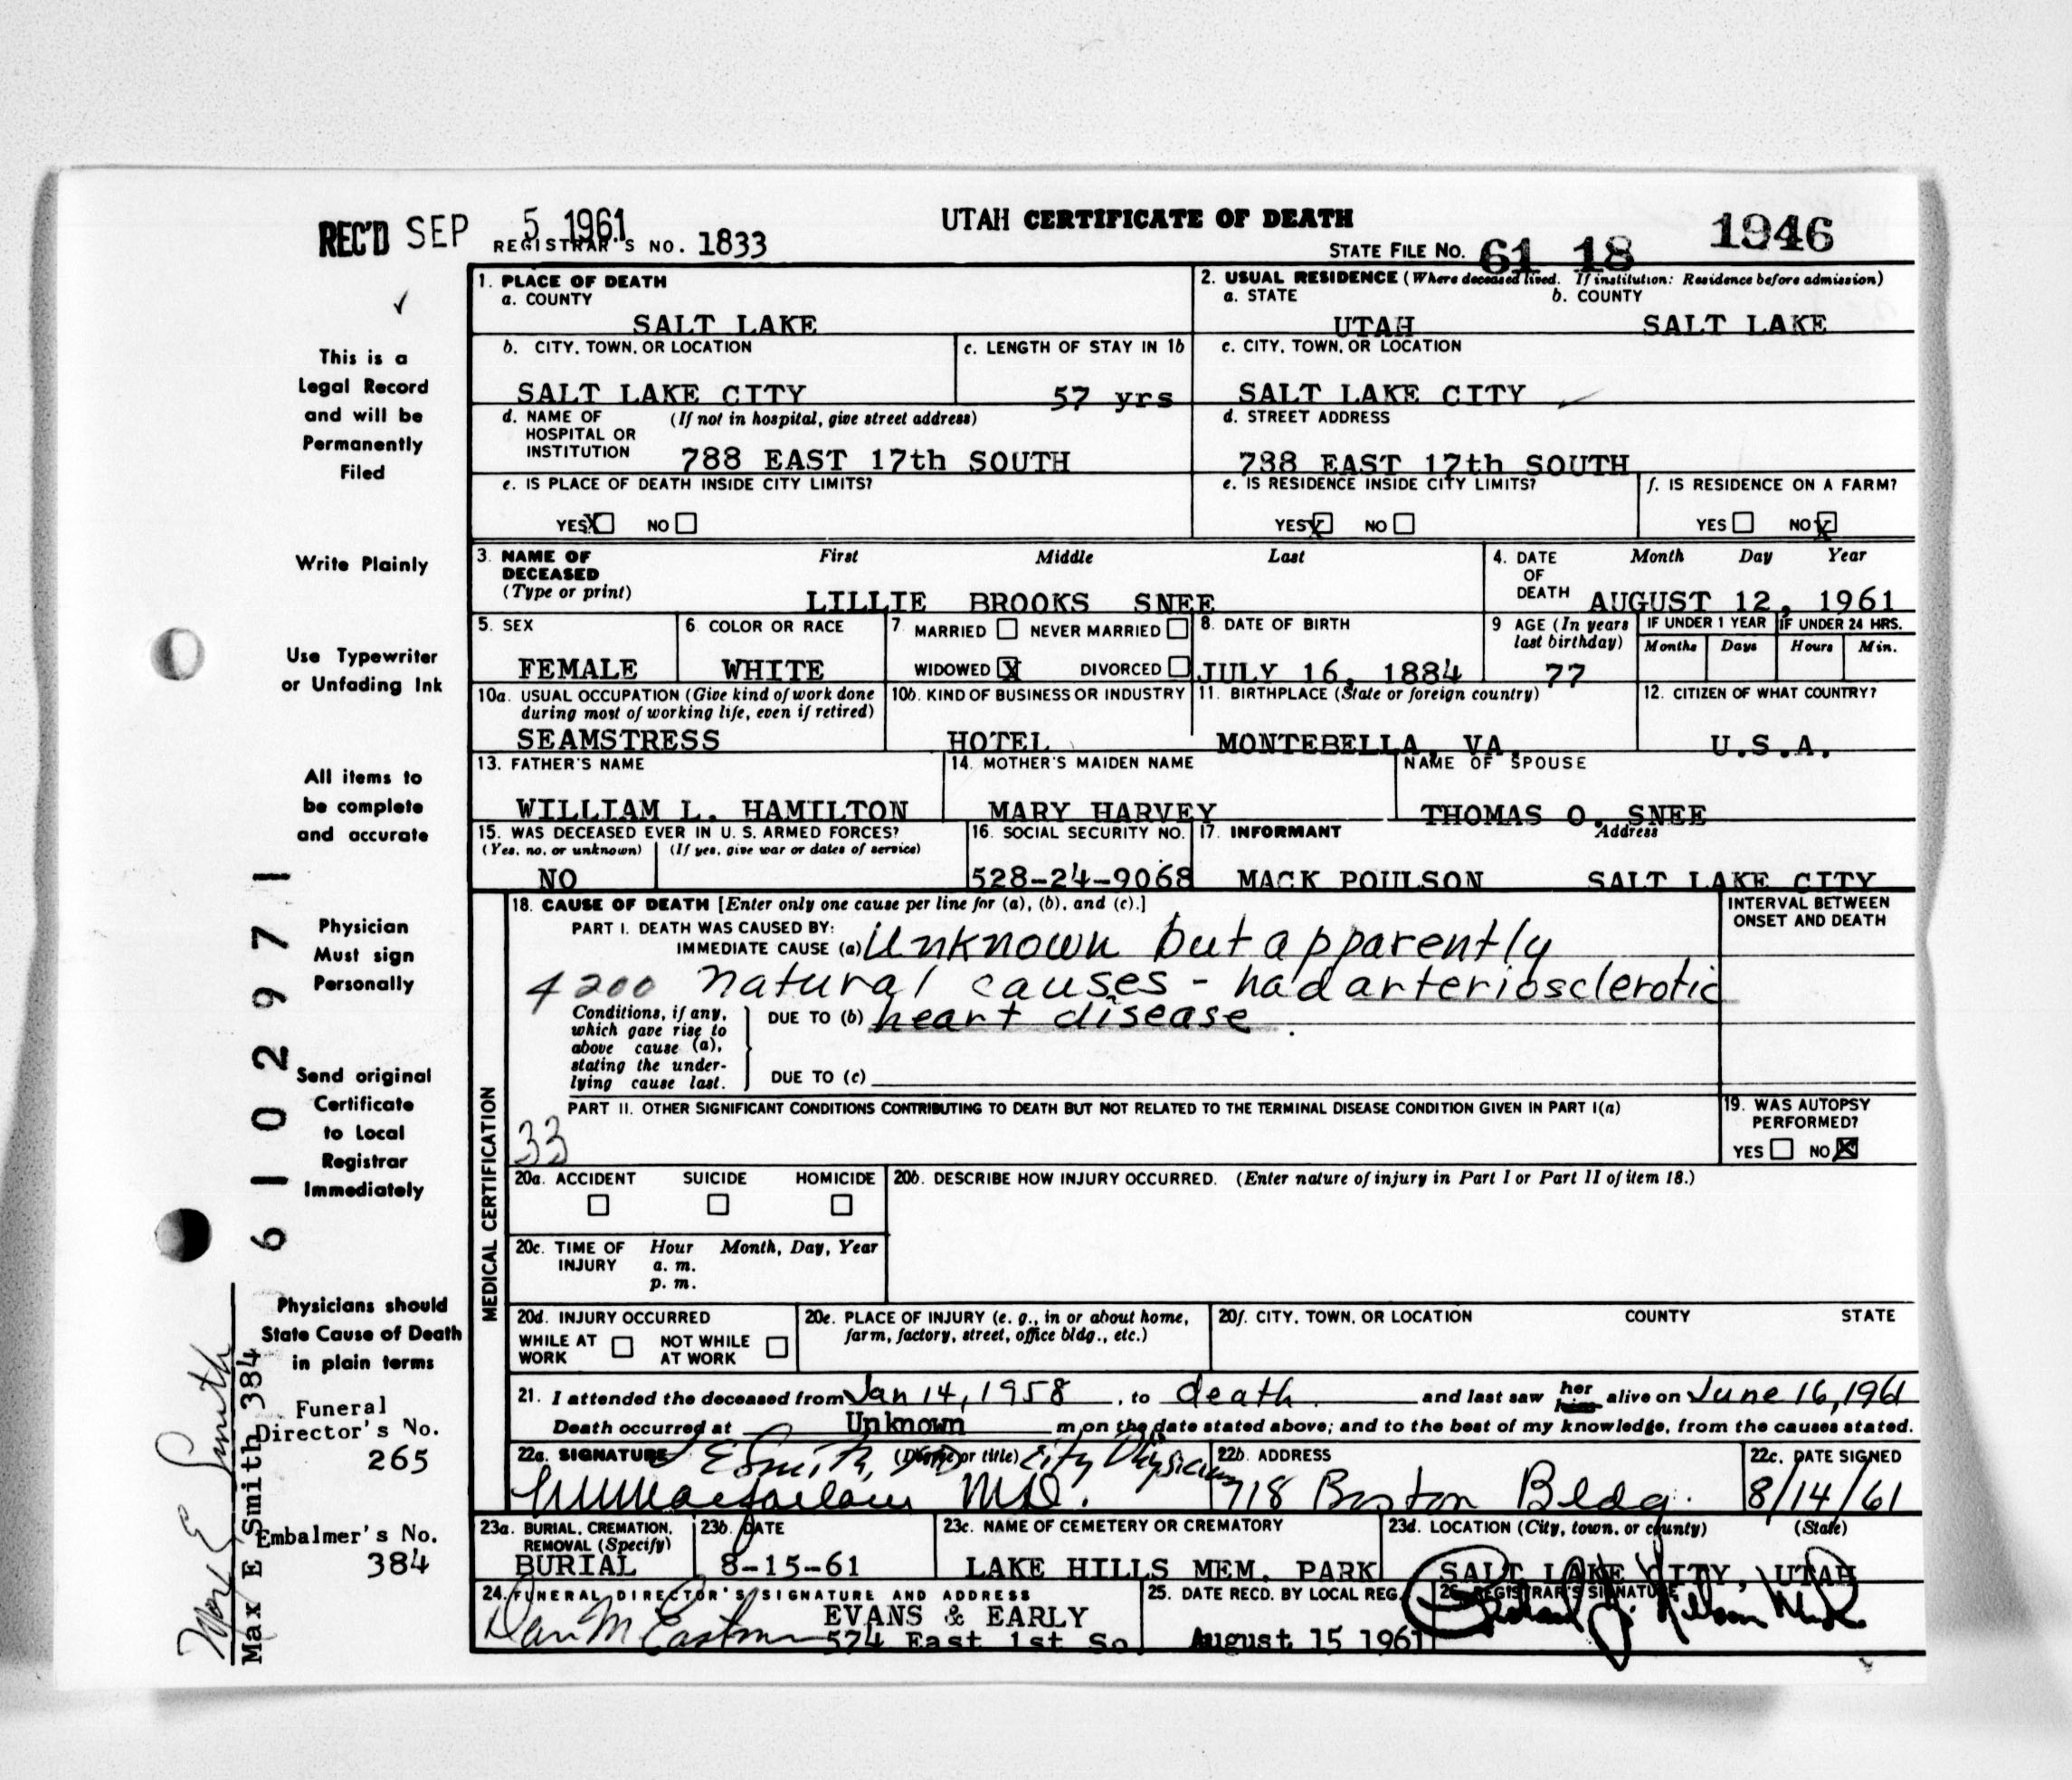 REC'D SEP 5 1961
REGISTRAR'S NO. 1833
UTAH CERTIFICATE OF DEATH
STATE FILE NO. 61 18 1946
1. PLACE OF DEATH
a. COUNTY
SALT LAKE
2. USUAL RESIDENCE (Where deceased lived. If institution: Residence before admission)
a. STATE b. COUNTY
UTAH SALT LAKE
b. CITY, TOWN, OR LOCATION
SALT LAKE CITY
c. LENGTH OF STAY IN 1b
57 yrs
c. CITY, TOWN, OR LOCATION
SALT LAKE CITY
d. NAME OF (If not in hospital, give street address)
HOSPITAL OR
INSTITUTION 788 EAST 17th SOUTH
d. STREET ADDRESS
788 EAST 17th SOUTH
e. IS PLACE OF DEATH INSIDE CITY LIMITS?
YES X NO
e. IS RESIDENCE INSIDE CITY LIMITS?
YES X NO
f. IS RESIDENCE ON A FARM?
YES NO X
3. NAME OF First Middle Last
DECEASED
(Type or print) LILLIE BROOKS SNEE
4. DATE Month Day Year
OF
DEATH AUGUST 12, 1961
5. SEX
FEMALE
6. COLOR OR RACE
WHITE
7. MARRIED NEVER MARRIED
WIDOWED X DIVORCED
8. DATE OF BIRTH
JULY 16, 1884
9 AGE (In years
last birthday)
77
IF UNDER 1 YEAR IF UNDER 24 HRS.
Months Days Hours Min.
10a. USUAL OCCUPATION (Give kind of work done
during most of working life, even if retired)
SEAMSTRESS
10b. KIND OF BUSINESS OR INDUSTRY
HOTEL
11. BIRTHPLACE (State or foreign country)
MONTEBELLA, VA.
12. CITIZEN OF WHAT COUNTRY?
U.S.A.
13. FATHER'S NAME
WILLIAM L. HAMILTON
14. MOTHER'S MAIDEN NAME
MARY HARVEY
NAME OF SPOUSE
THOMAS O. SNEE
15. WAS DECEASED EVER IN U. S. ARMED FORCES?
(Yes, no, or unknown) (If yes, give war or dates of service)
NO
16. SOCIAL SECURITY NO.
528-24-9068
17. INFORMANT Address
MACK POULSON SALT LAKE CITY
MEDICAL CERTIFICATION
18. CAUSE OF DEATH [Enter only one cause per line for (a), (b), and (c).]
INTERVAL BETWEEN
ONSET AND DEATH
PART I. DEATH WAS CAUSED BY:
IMMEDIATE CAUSE (a) Unknown but apparently
4200 natural causes - had arteriosclerotic
Conditions, if any,
which gave rise to
above cause (a),
stating the under-
lying cause last.
DUE TO (b) heart disease.
DUE TO (c)
PART II. OTHER SIGNIFICANT CONDITIONS CONTRIBUTING TO DEATH BUT NOT RELATED TO THE TERMINAL DISEASE CONDITION GIVEN IN PART I(a)
33
19. WAS AUTOPSY
PERFORMED?
YES NO X
20a. ACCIDENT SUICIDE HOMICIDE
20b. DESCRIBE HOW INJURY OCCURRED. (Enter nature of injury in Part I or Part II of item 18.)
20c. TIME OF Hour Month, Day, Year
INJURY a. m.
p. m.
20d. INJURY OCCURRED
WHILE AT NOT WHILE
WORK AT WORK
20e. PLACE OF INJURY (e. g., in or about home,
farm, factory, street, office bldg., etc.)
20f. CITY, TOWN, OR LOCATION COUNTY STATE
21. I attended the deceased from Jan 14, 1958, to death and last saw her him alive on June 16, 1961
Death occurred at Unknown m, on the date stated above; and to the best of my knowledge, from the causes stated.
22a. SIGNATURE E Smith, (Degree or title) City Physician
Macfarlane M.D.
22b. ADDRESS
718 Boston Bldg.
22c. DATE SIGNED
8/14/61
23a. BURIAL, CREMATION,
REMOVAL (Specify)
BURIAL
23b. DATE
8-15-61
23c. NAME OF CEMETERY OR CREMATORY
LAKE HILLS MEM. PARK
23d. LOCATION (City, town, or county) (State)
SALT LAKE CITY, UTAH
24. FUNERAL DIRECTOR'S SIGNATURE AND ADDRESS
Dan M Eastman EVANS & EARLY
574 East 1st So
25. DATE RECD. BY LOCAL REG.
August 15 1961
26. REGISTRAR'S SIGNATURE
This is a
Legal Record
and will be
Permanently
Filed
Write Plainly
Use Typewriter
or Unfading Ink
All items to
be complete
and accurate
Physician
Must sign
Personally
Send original
Certificate
to Local
Registrar
Immediately
Physicians should
State Cause of Death
in plain terms
Funeral
Director's No.
265
Embalmer's No.
384
61029 71
Max E Smith
Max E Smith 384